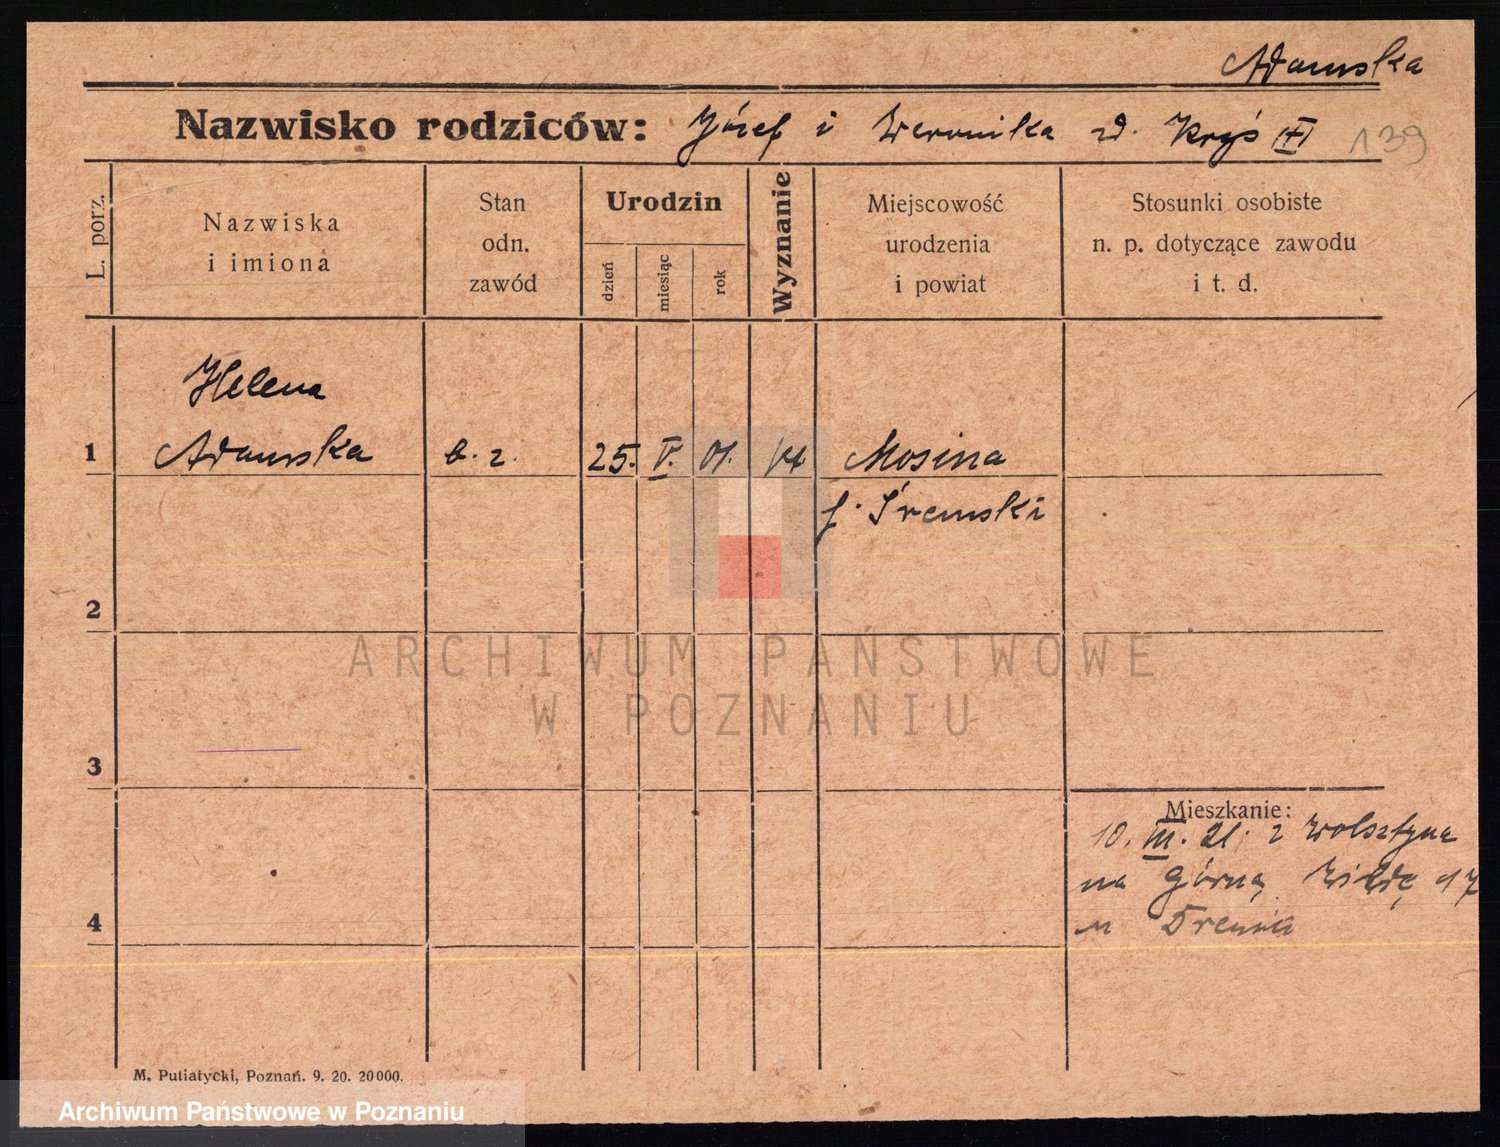 Adamska
Nazwisko rodziców: Józef i Weronika zd. Kryś
139
L. porz.
Nazwiska
i imiona
Stan
odn.
zawód
Urodzin
dzień
miesiąc
rok
Wyznanie
Miejscowość
urodzenia
i powiat
Stosunki osobiste
n. p. dotyczące zawodu
i t. d.
Helena
1 Adamska b. z. 25. V. 01. kat Mosina
p. Śremski
2
ARCHIWUM PAŃSTWOWE
W POZNANIU
3
Mieszkanie:
10. III. 21. z Wolsztyna
na Górną Wildę 17
4
M. Putiatycki, Poznań. 9. 20. 20000.
Archiwum Państwowe w Poznaniu